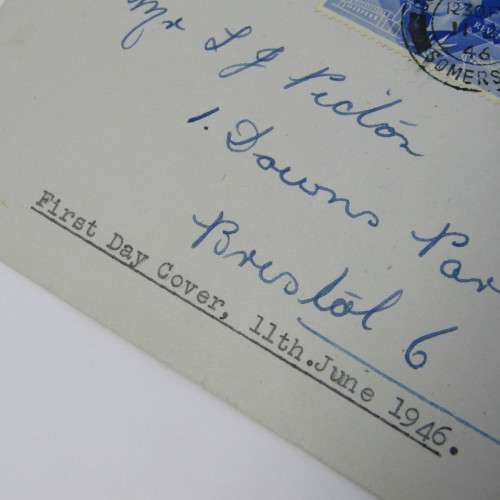 12 30 P
11
46
SOMERS
Mr L J Picton
1. Downs Par
Bristol 6
First Day Cover, 11th.June 1946.